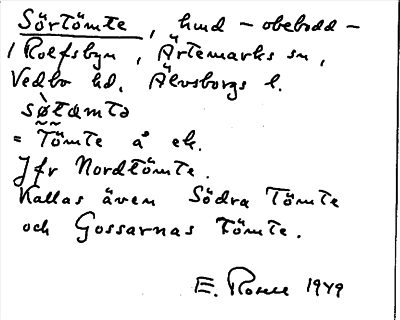 Sörtömte, hmd - obebodd -
i Rolfsbyn, Ärtemarks sn,
Vedbo hd, Älvsborgs l.
sø̀tœmtə
= Tömte å ek.
Jfr Nordtömte.
Kallas även Södra Tömte
och Gossarnas Tömte.
E. 1949